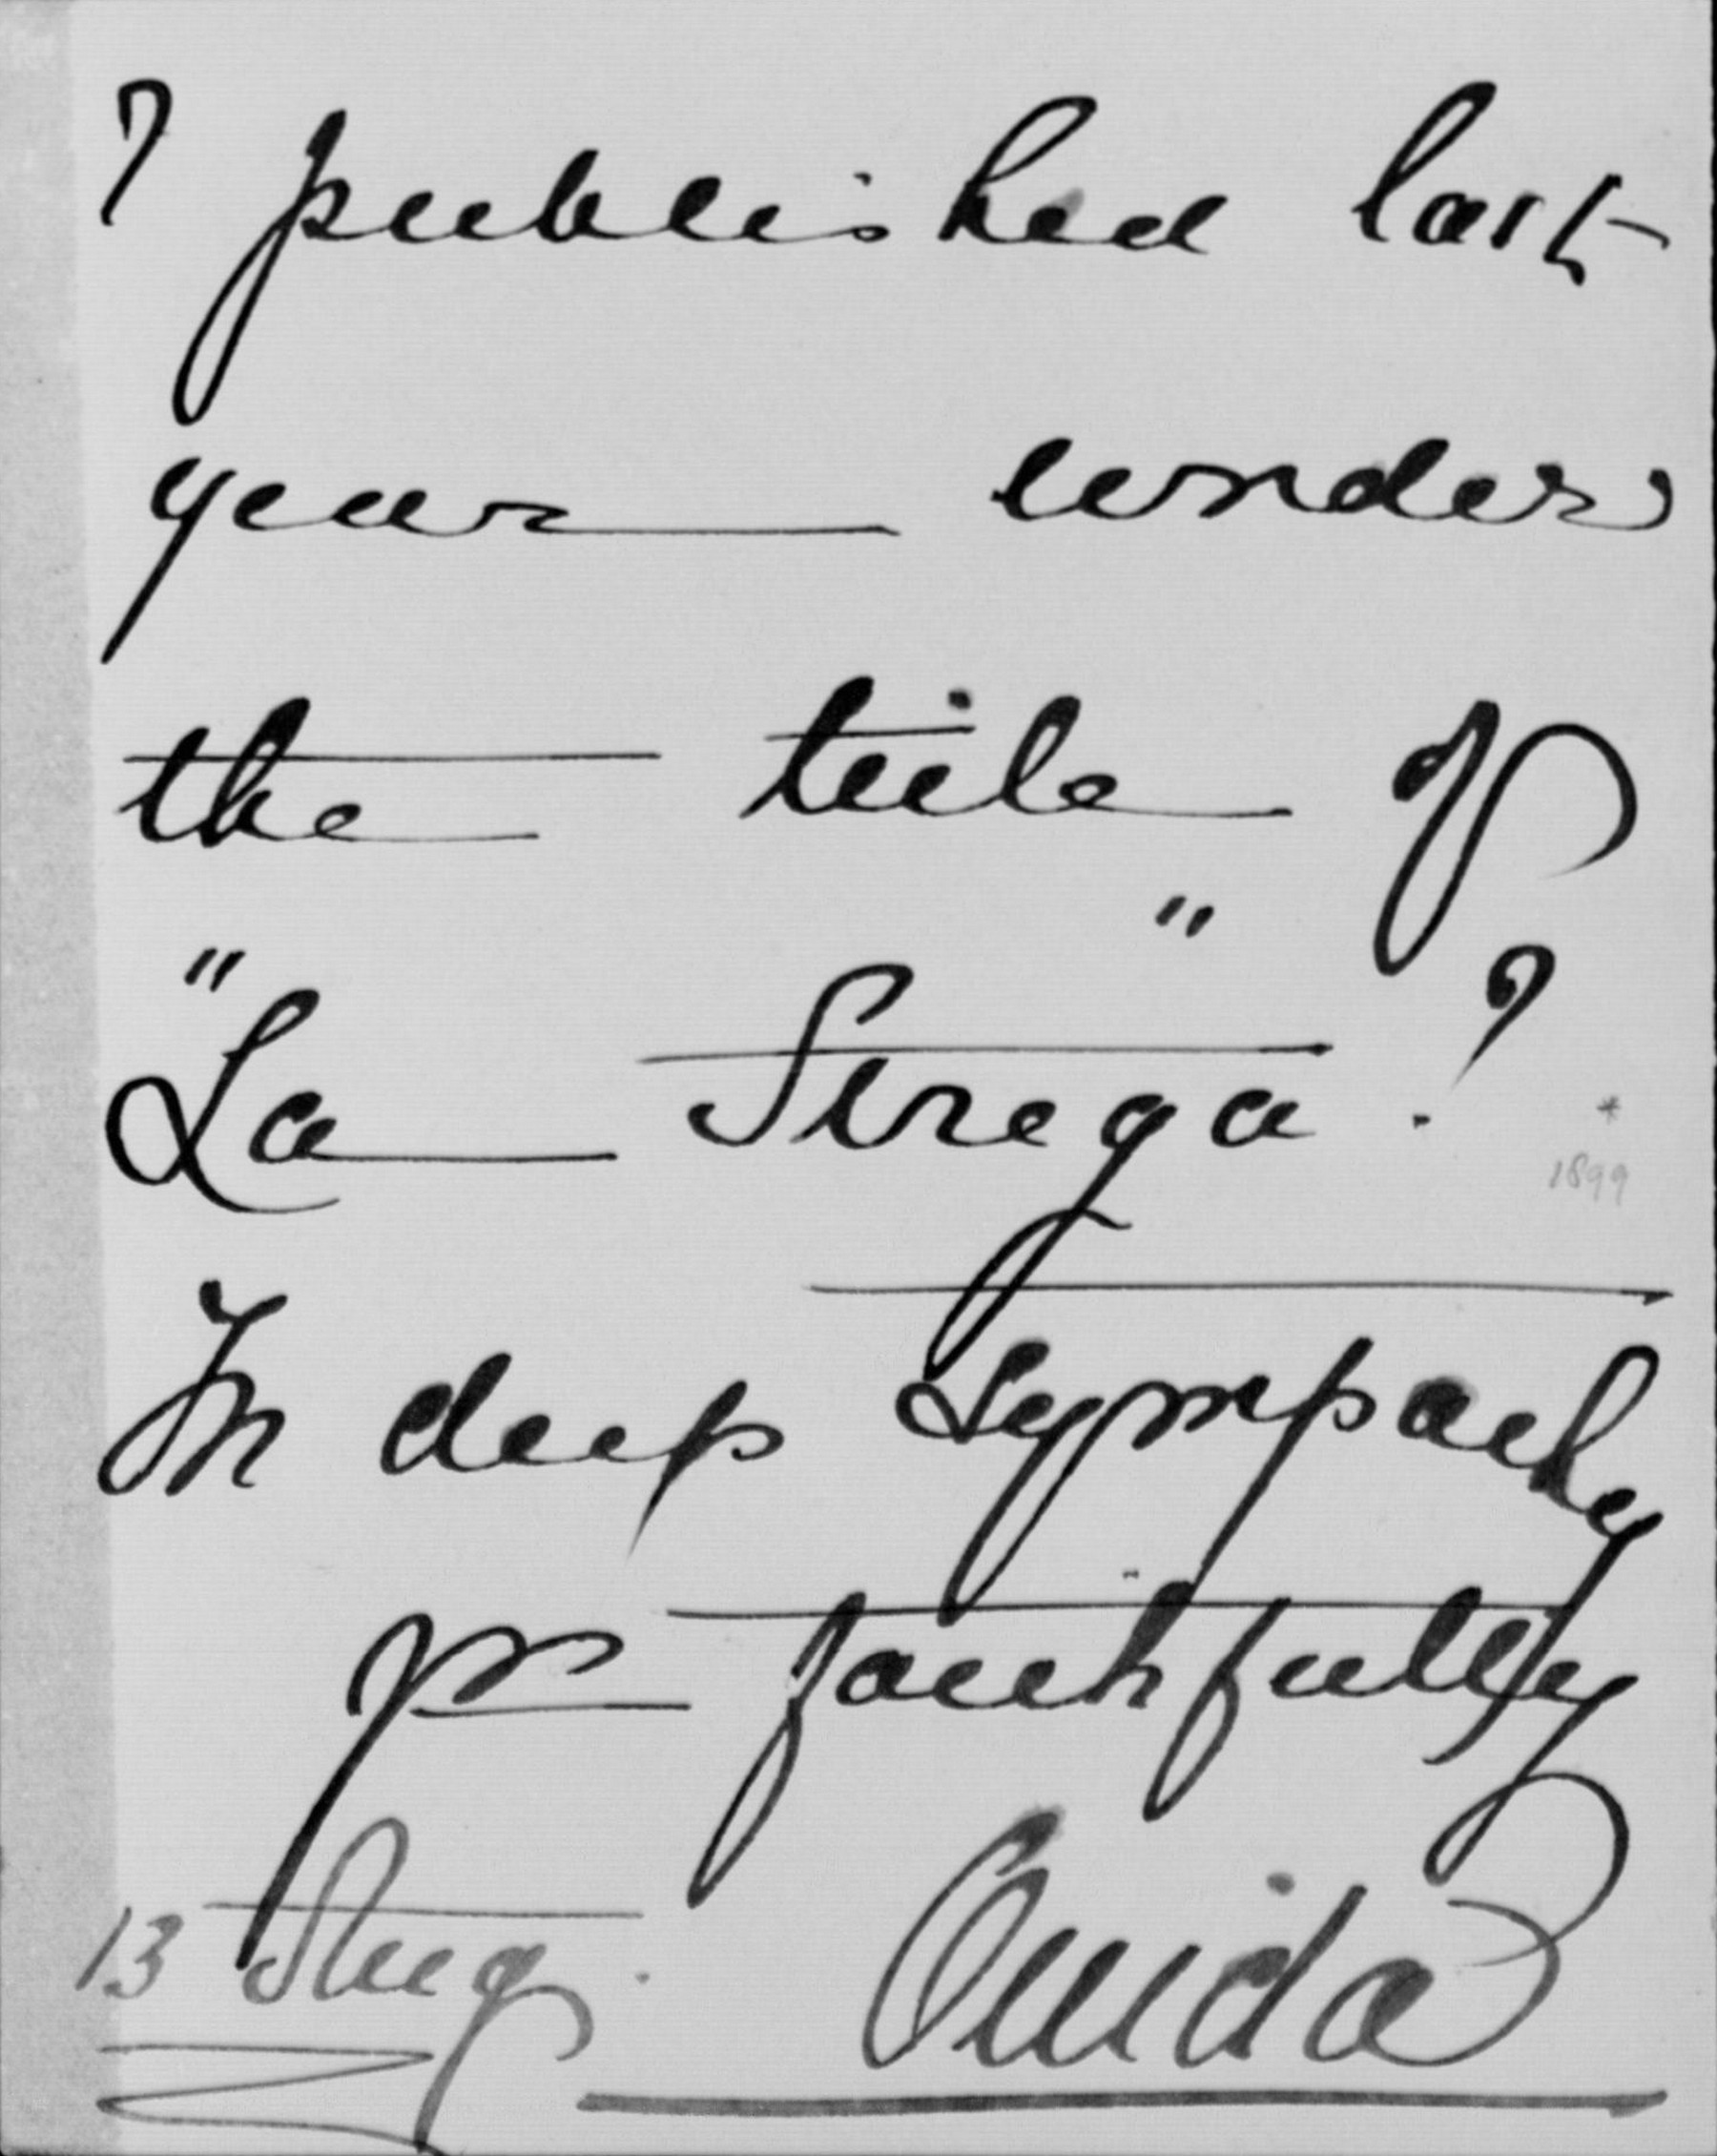 ? published last
year under
the title of
"La Strega"?
*
1899
In deep sympathy
yrs faithfully
13 Aug. Ouida